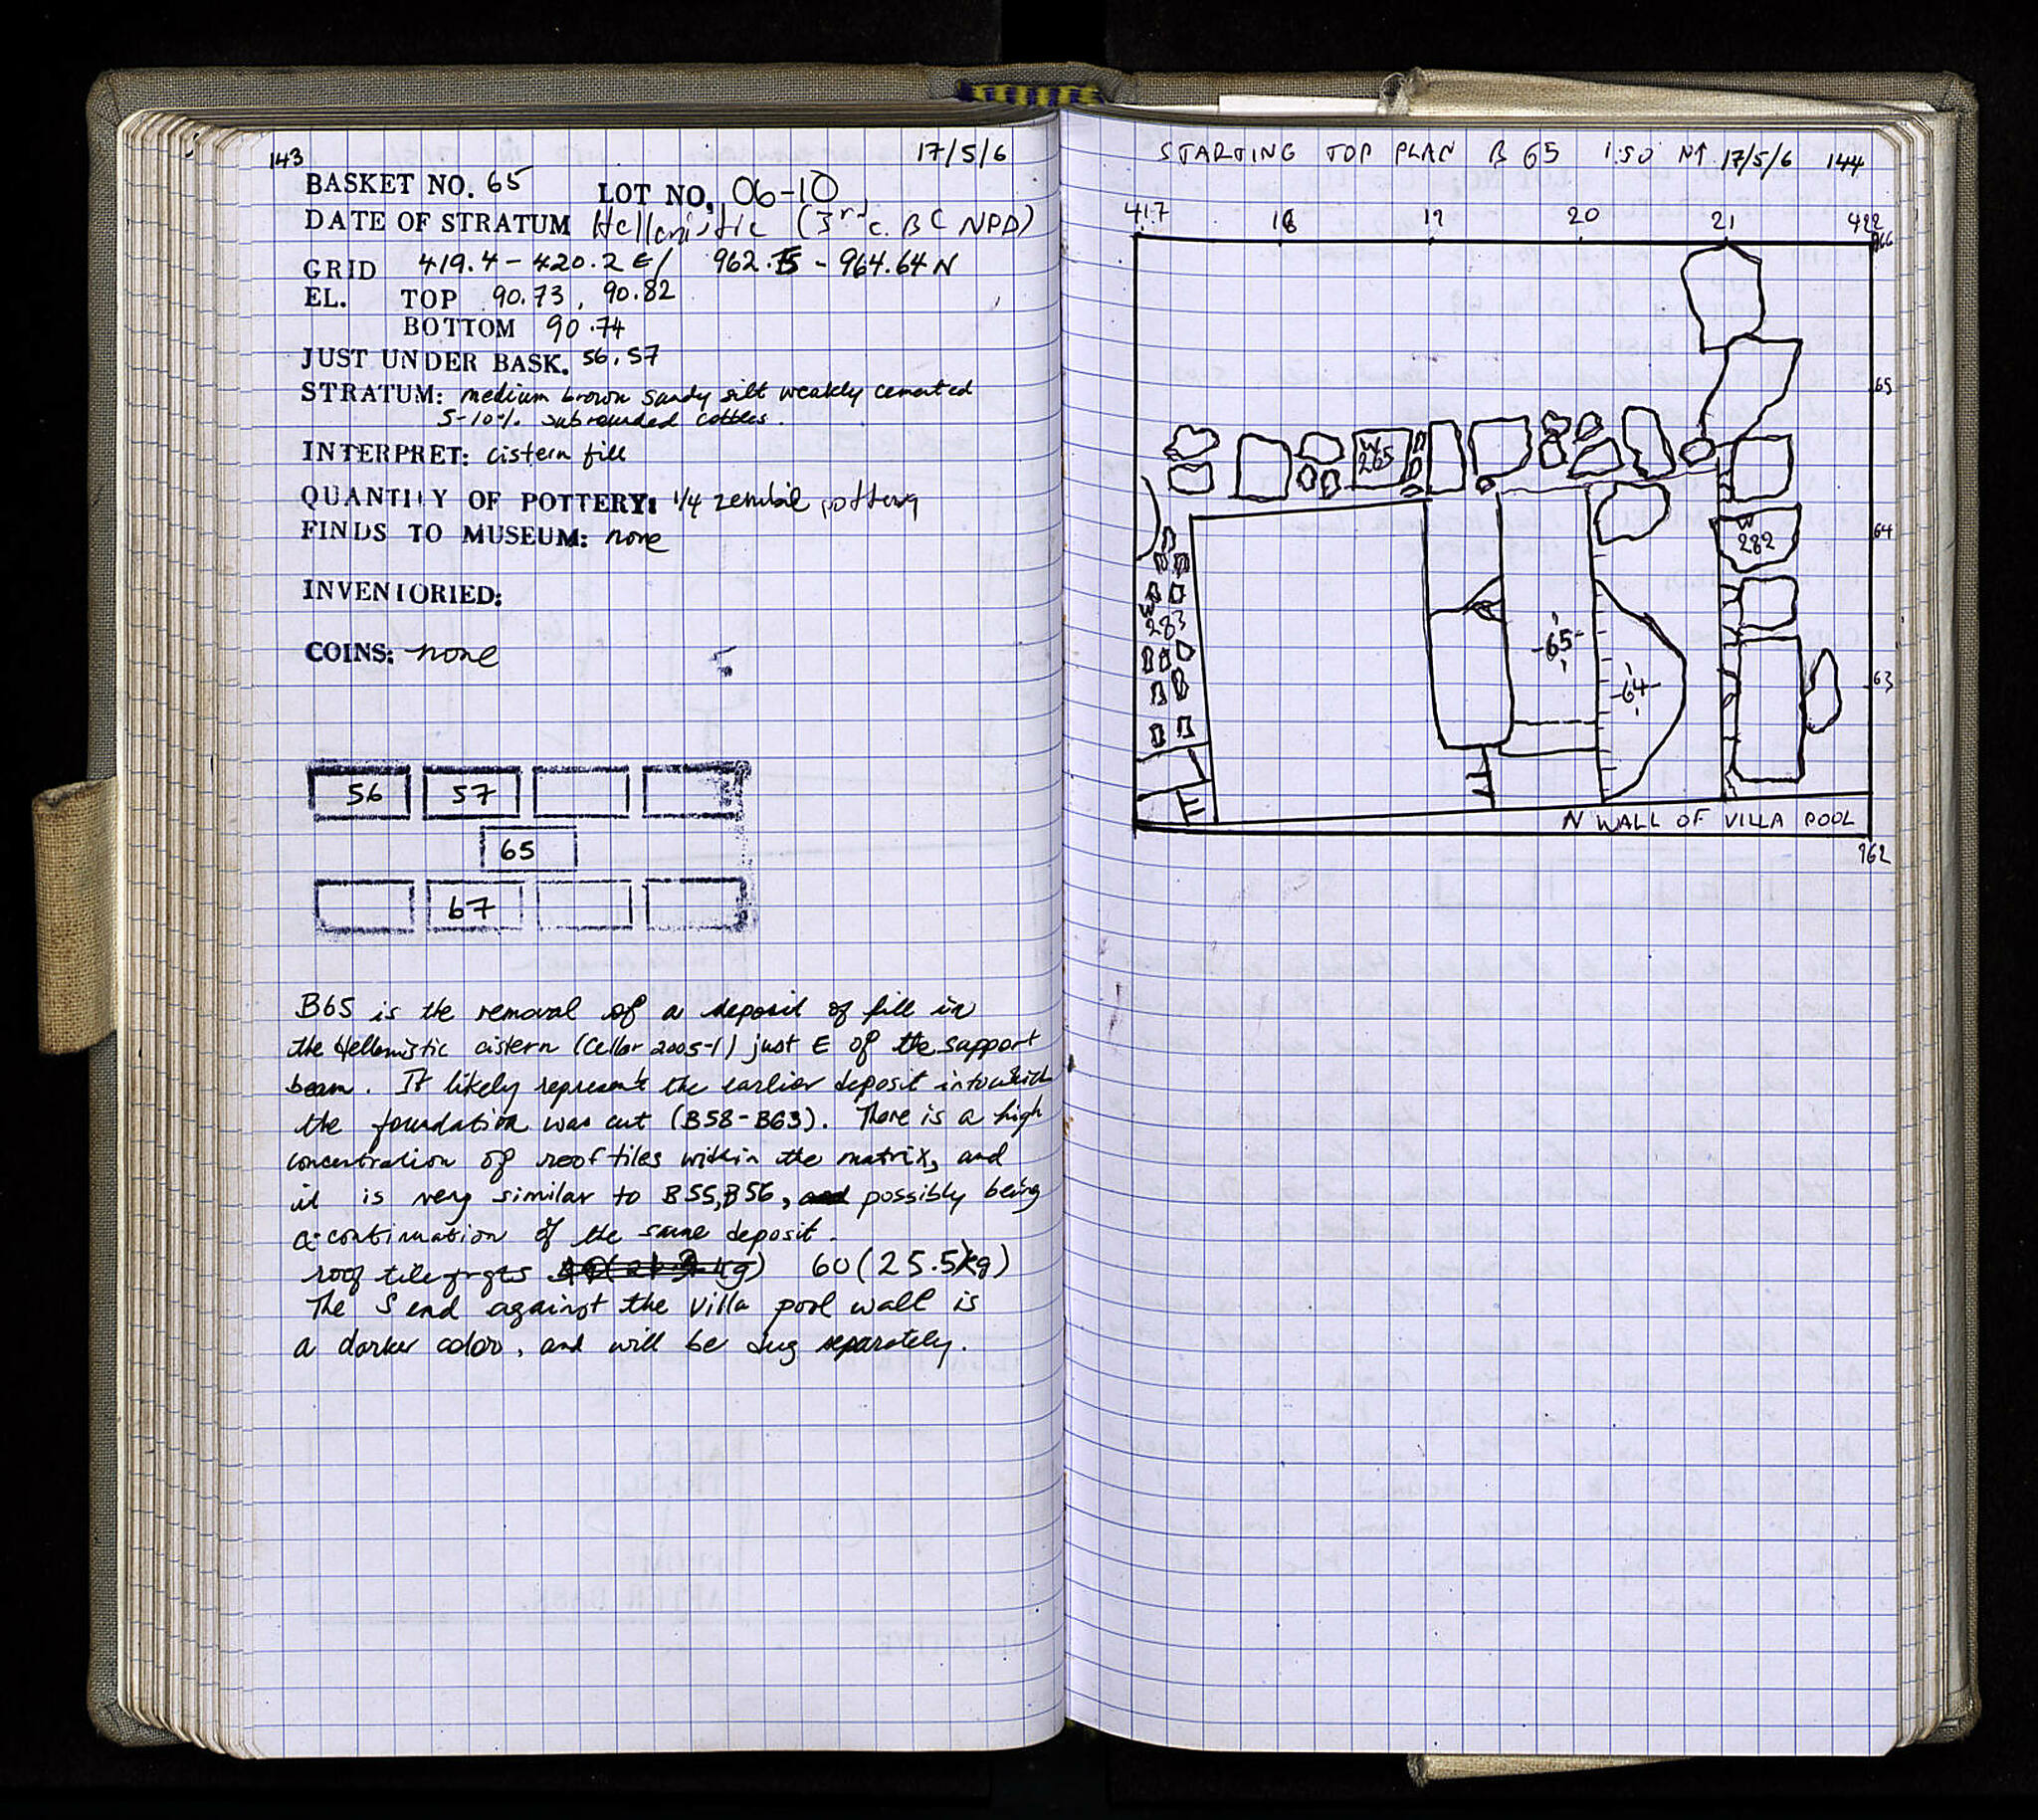 143
17/5/6
BASKET NO. 65 LOT NO, 06-10
DATE OF STRATUM Hellenistic (3rd c. BC NPD)
GRID 419.4 - 420.2 E / 962.75 - 964.64 N
EL. TOP 90.73, 90.82
BOTTOM 90.74
JUST UNDER BASK. 56, 57
STRATUM: medium brown sandy silt weakly cemented
5-10% subrounded cobbles.
INTERPRET: cistern fill
QUANTITY OF POTTERY: 1/4 zembil pottery
FINDS TO MUSEUM: none
INVENTORIED:
COINS: none
56 57
65
67
B65 is the removal of a deposit of fill in
the Hellenistic cistern (Cellar 2005-1) just E of the support
beam. It likely represents the earlier deposit into which
the foundation was cut (B58-B63). There is a high
concentration of roof tiles within the matrix, and
it is very similar to B55, B56, and possibly being
a continuation of the same deposit.
roof tile frgts 60 (25.5kg)
The S end against the villa pool wall is
a darker color, and will be dug separately.
STARTING TOP PLAN B 65 1:50 N↑ 17/5/6 144
417 18 19 20 21 422
966
65
W 265
64
W 282
W 283
65
64
63
N WALL OF VILLA POOL
962